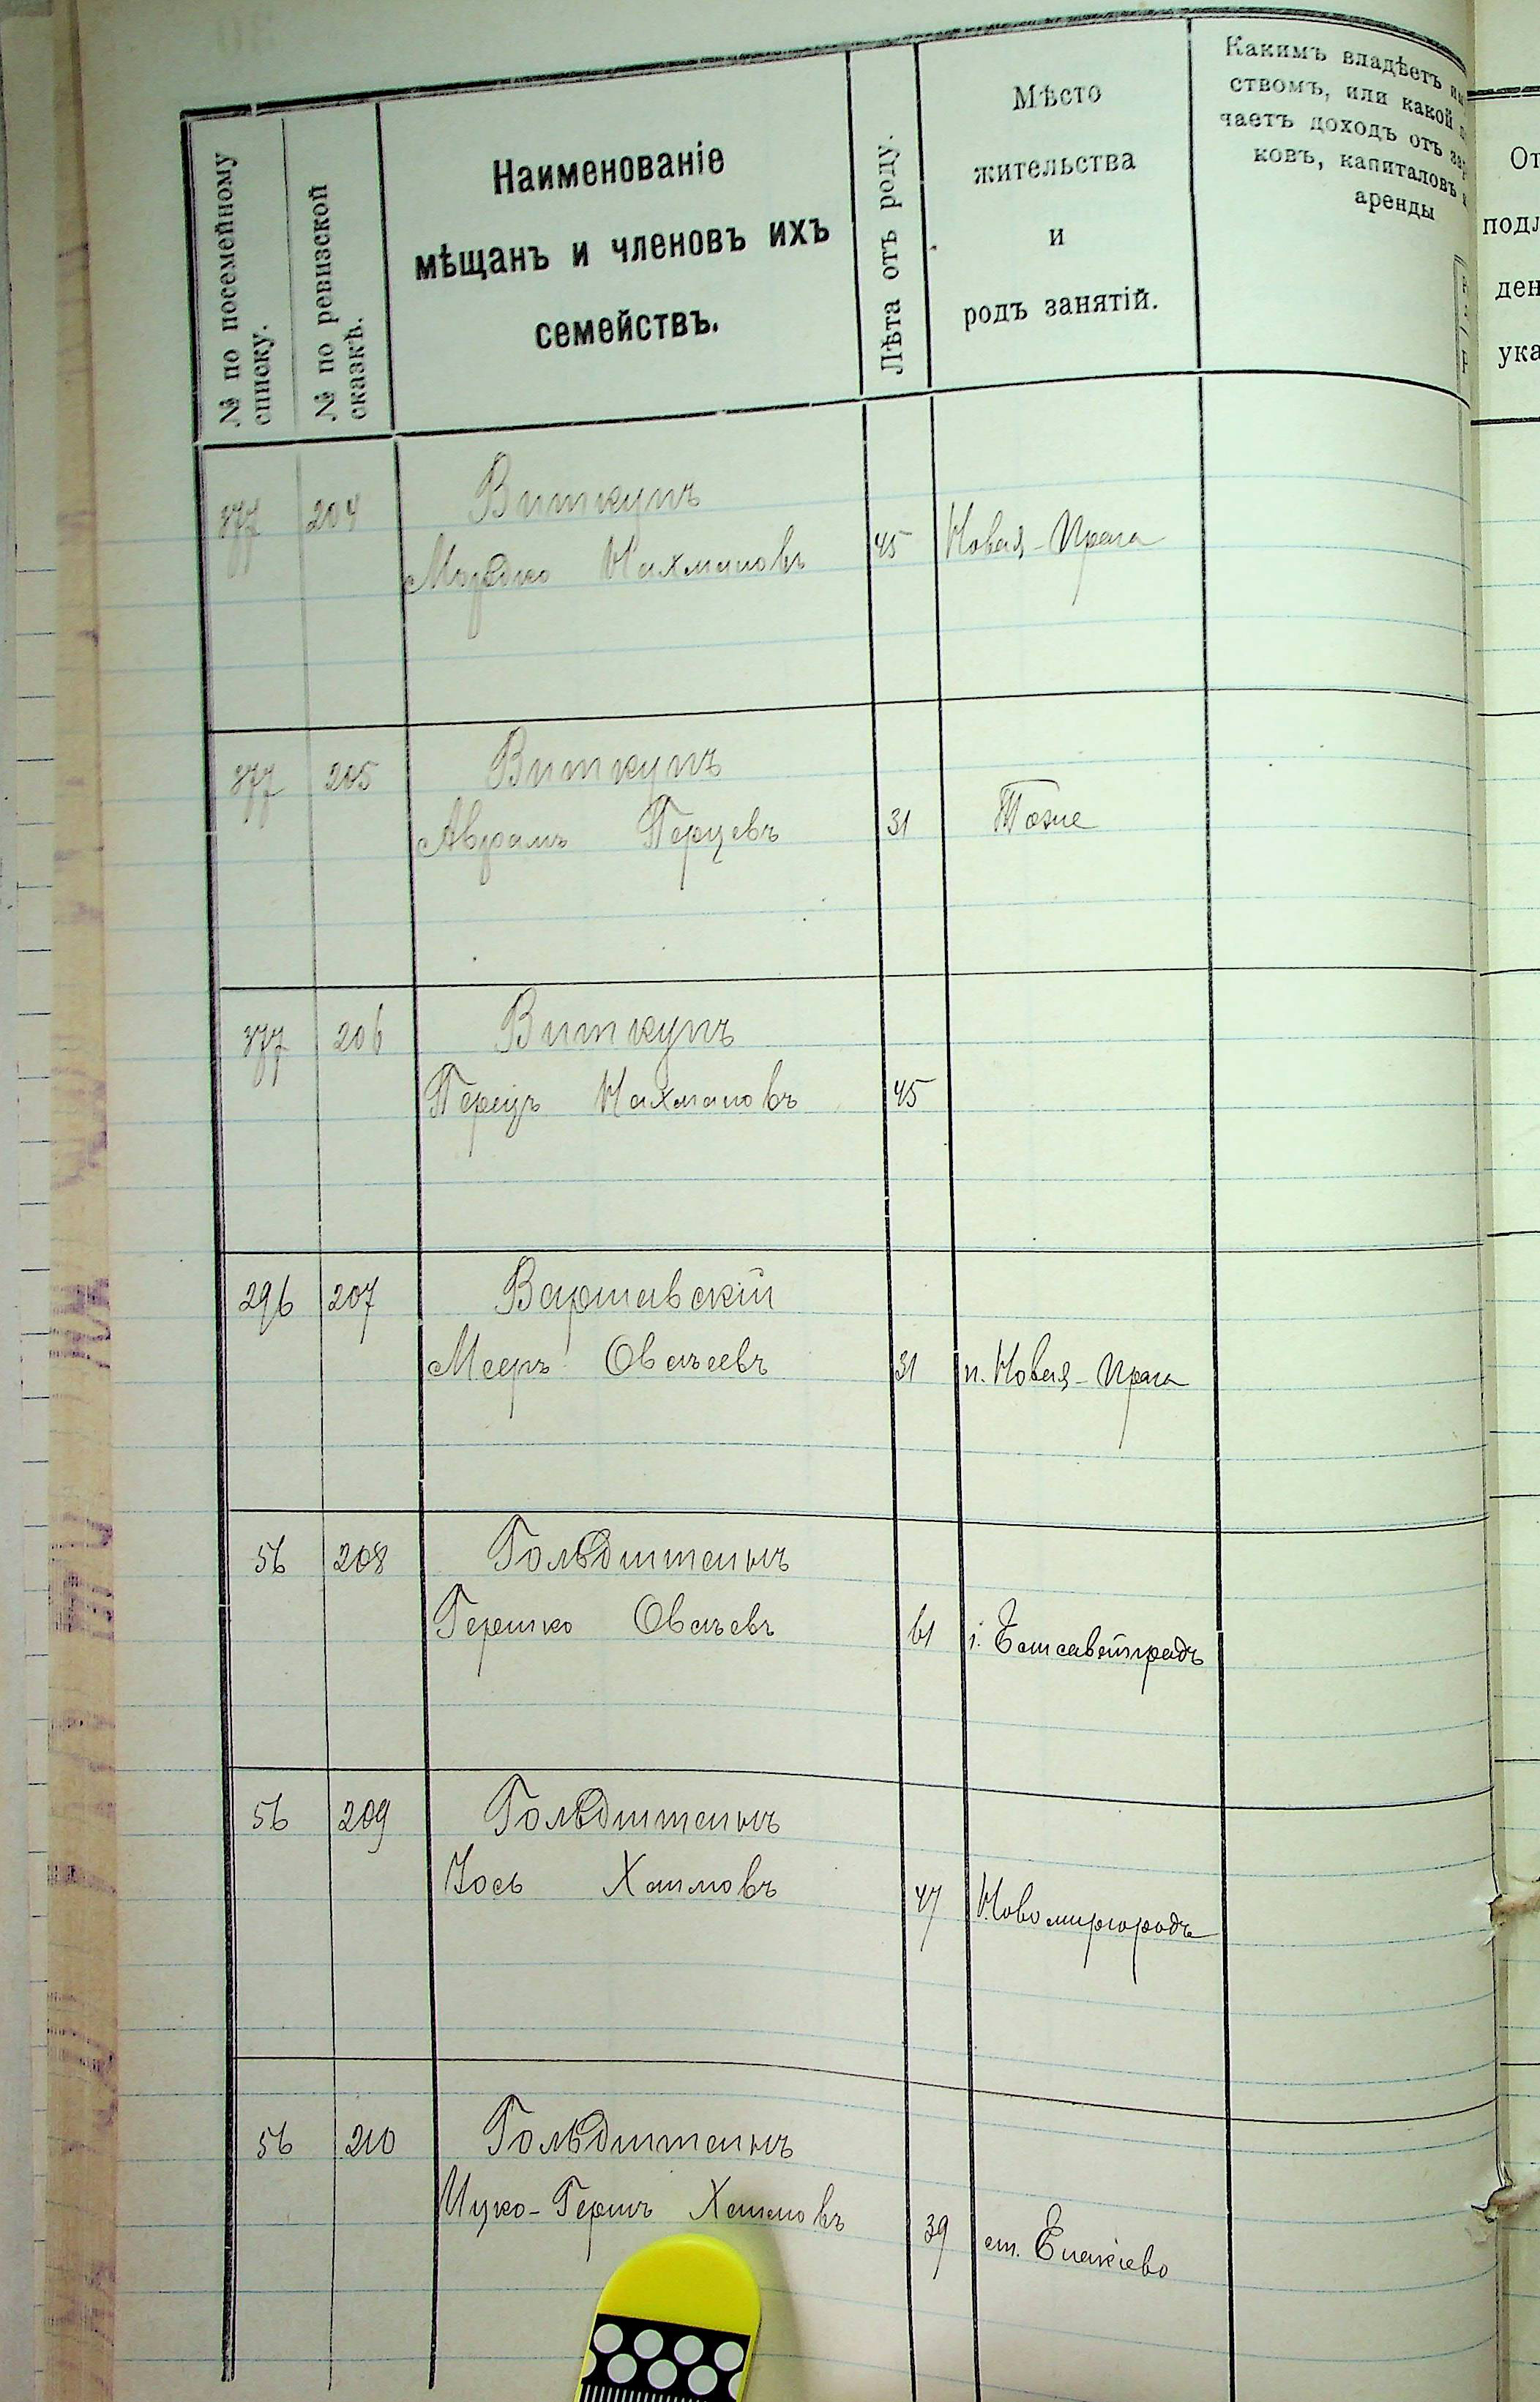 № по посемейному
списку.
№ по ревизской
сказкѣ.
Наименованіе
мѣщанъ и членовъ ихъ
семействъ.
Лѣта отъ роду.
Мѣсто
жительства
и
родъ занятій.
Какимъ владѣетъ
ствомъ, или какой
чаетъ доходъ отъ
ковъ, капиталовъ
аренды
От
подл
ден
ука
377 204 Виткупъ
Мордко Нахмановъ 45 Новая-Прага
377 205 Виткупъ
Аврамъ Перцевъ 31 Тоже
377 206 Виткупъ
Перецъ Нахмановъ 45
296 207 Варшавскій
Мееръ Овсѣевъ 31 п. Новая-Прага
56 208 Гольдштейнъ
Гершко Овсѣевъ 61 г. Елисаветградъ
56 209 Гольдштейнъ
Іось Хаимовъ 47 Новомиргородъ
56 210 Гольдштейнъ
Ицко-Гершъ Хаимовъ 39 ст. Енакіево